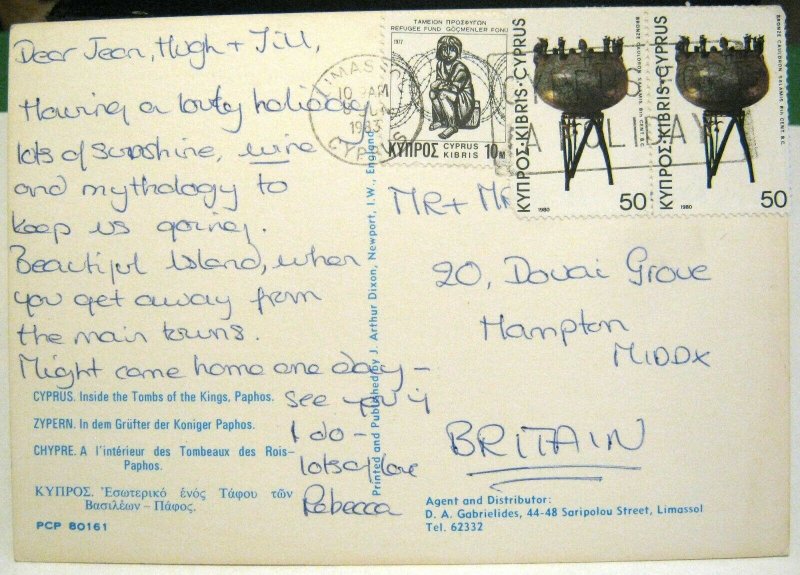 Dear Jean, Hugh + Jill,
Having a lovely holiday
lots of sunshine, wine
and mythology to
keep us going.
Beautiful Island, when
you get away from
the main towns.
Might come home one day -
see you if
I do -
lots of love
Rebecca
CYPRUS. Inside the Tombs of the Kings, Paphos.
ZYPERN. In dem Grüfter der Koniger Paphos.
CHYPRE. A l'intérieur des Tombeaux des Rois-
Paphos.
ΚΥΠΡΟΣ. Ἐσωτερικό ἑνός Τάφου τῶν
Βασιλέων – Πάφος.
PCP 80161
Printed and Published by J. Arthur Dixon, Newport, I.W., England
ΤΑΜΕΙΟΝ ΠΡΟΣΦΥΓΩΝ
REFUGEE FUND GÖÇMENLER FONU
1977
ΚΥΠΡΟΣ CYPRUS KIBRIS 10M
LIMASSOL
10 AM
JUN
CYPRUS
HOLIDAY
ΚΥΠΡΟΣ·KIBRIS·CYPRUS
BRONZE CAULDRON SALAMIS 8th CENT. B.C.
1980
50
ΚΥΠΡΟΣ·KIBRIS·CYPRUS
BRONZE CAULDRON SALAMIS 8th CENT. B.C.
1980
50
MR + MR
20, Douai Grove
Hampton
MIDDX
BRITAIN
Agent and Distributor:
D. A. Gabrielides, 44-48 Saripolou Street, Limassol
Tel. 62332